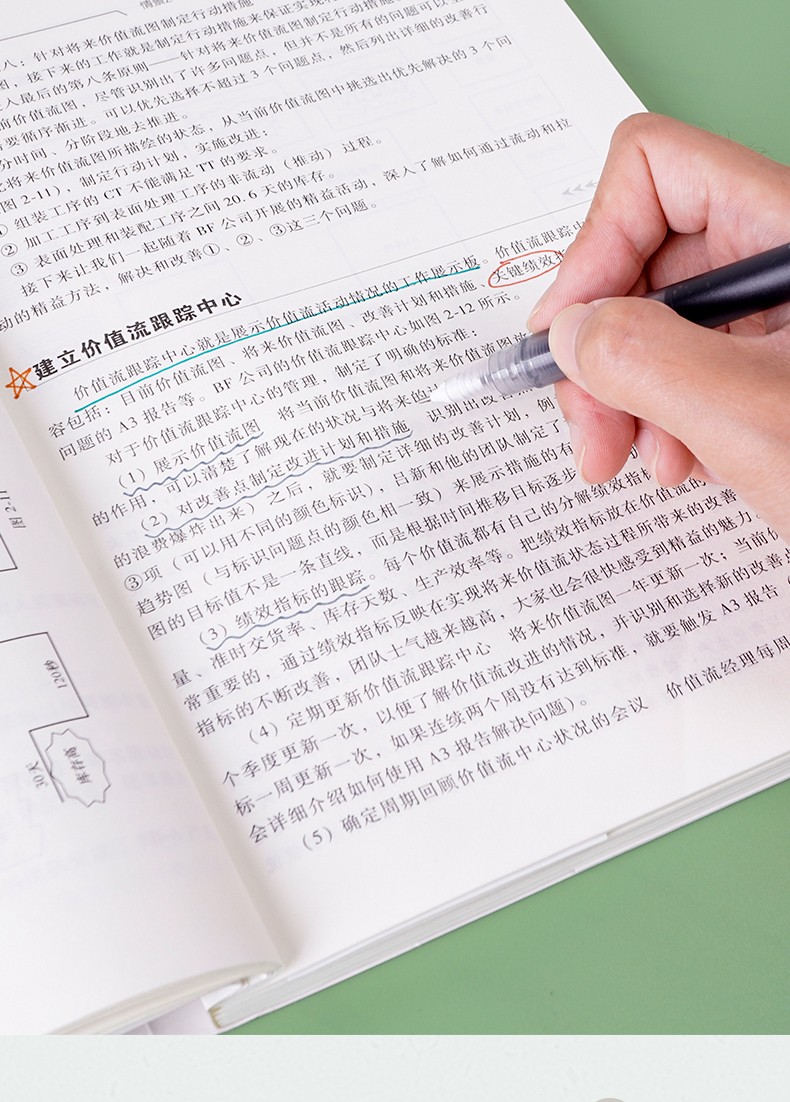 八：针对将来价值流图制定行动措施
图，接下来的工作就是制定行动措施来保证实现
入最后的第八条原则——针对将来价值流图制定行动措施
前价值流图，尽管识别出了许多问题点，但并不是所有的问题可以
需要循序渐进。可以优先选择不超过3个问题点，然后列出详细的改善行
分时间、分阶段地去推进。
将来价值流图所描绘的状态，从当前价值流图中挑选出优先解决的3个问
图2-11），制定行动计划，实施改进：
① 组装工序的CT不能满足TT的要求。
② 加工工序到表面处理工序的非流动（推动）过程。
③ 表面处理和装配工序之间20.6天的库存。
接下来让我们一起随着BF公司开展的精益活动，深入了解如何通过流动和拉
动的精益方法，解决和改善①、②、③这三个问题。
建立价值流跟踪中心
价值流跟踪中心就是展示价值流活动情况的工作展示板。价值流跟踪中
容包括：目前价值流图、将来价值流图、改善计划和措施、关键绩效指
问题的A3报告等。BF公司的价值流跟踪中心如图2-12所示。
对于价值流跟踪中心的管理，制定了明确的标准：
（1）展示价值流图 将当前价值流图和将来价值流图
的作用，可以清楚了解现在的状况与将来的
（2）对改善点制定改进计划和措施 识别出改善
的浪费爆炸出来）之后，就要制定详细的改善计划，例
③项（可以用不同的颜色标识），吕新和他的团队制定了
趋势图（与标识问题点的颜色相一致）来展示措施的有
图的目标值不是一条直线，而是根据时间推移目标逐步
（3）绩效指标的跟踪。每个价值流都有自己的分解绩效指标
量、准时交货率、库存天数、生产效率等。把绩效指标放在价值流的
常重要的，通过绩效指标反映在实现将来价值流状态过程所带来的改善
指标的不断改善，团队士气越来越高，大家也会很快感受到精益的魅力
（4）定期更新价值流跟踪中心 将来价值流图一年更新一次；当前价
个季度更新一次，以便了解价值流改进的情况，并识别和选择新的改善点
标一周更新一次，如果连续两个周没有达到标准，就要触发A3报告（
会详细介绍如何使用A3报告解决问题）。
（5）确定周期回顾价值流中心状况的会议 价值流经理每周
120秒
30天
库存高